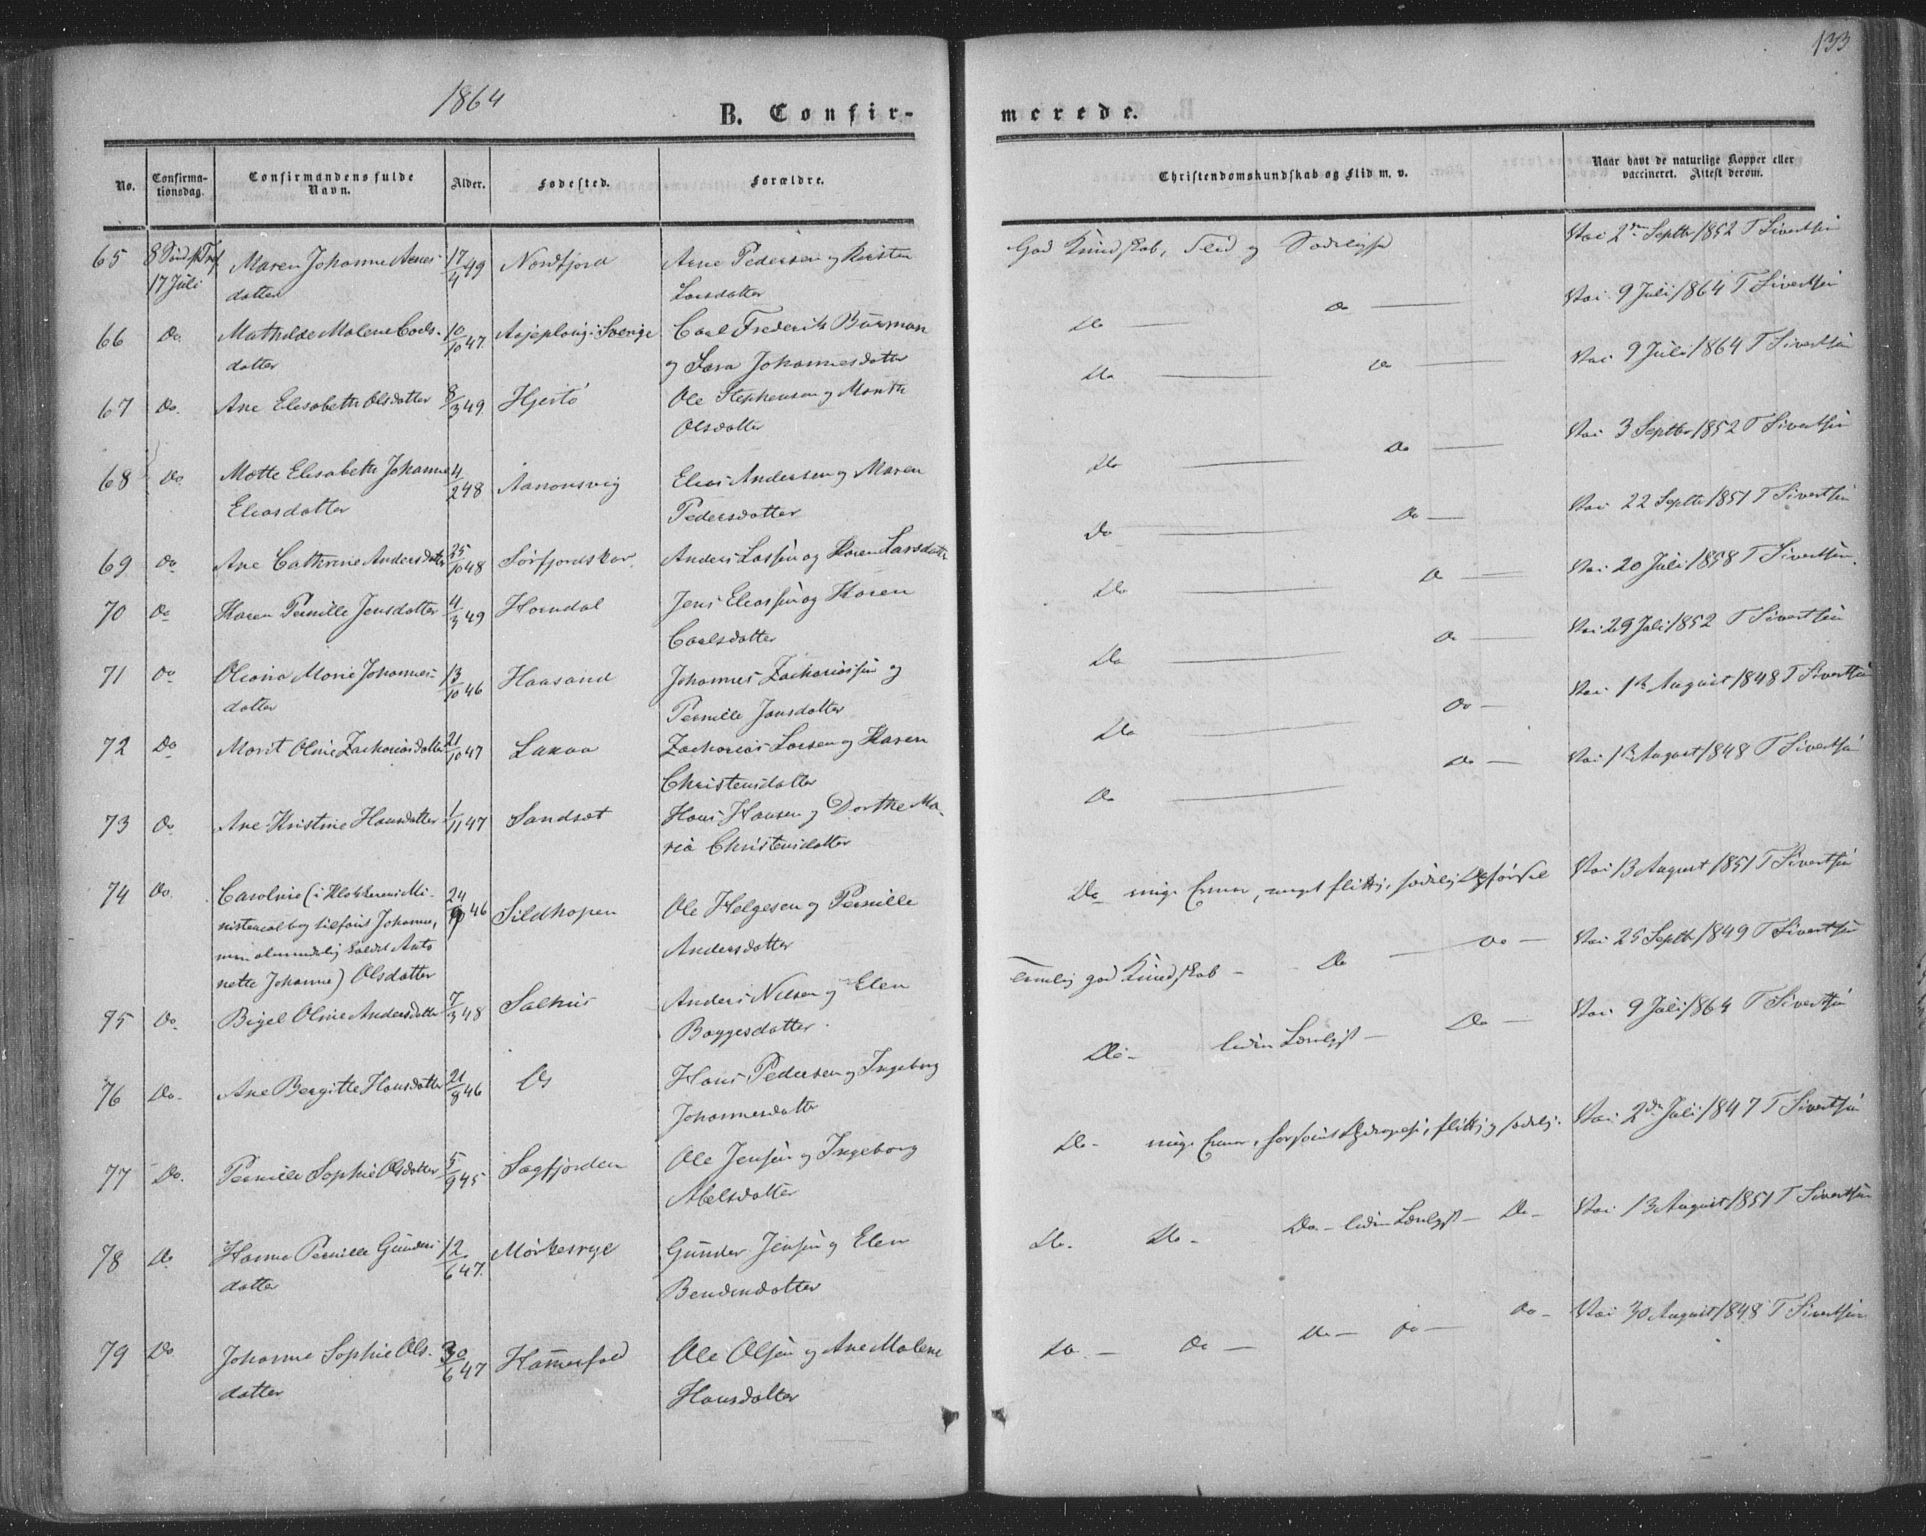 133
1864
B. Confir-
merede.
No.
Confirma-
tionsdag.
Confirmandens fulde
Navn.
Alder.
Fødested.
Forældre.
Christendomskundskab og Flid m. v.
Naar havt de naturlige Kopper eller
vaccineret. Attest derom.
65 8 Sind. p. Tref. Maren Johanne Arnes- 17/4 49 Nordfjord Arne Pedersen og Kirsten
17 Juli datter Larsdatter
God Kundskab, Flid og Sædelighed Vac. 2den Septbr 1852 T Sivertsen
66 Do. Mathilde Malene Carls- 10/10 47. Arjeploug i Sverige Carl Frederik Burman
datter og Sara Johannesdatter
Do — Do — Vac. 9 Juli 1864 T Sivertsen
67 Do. Ane Elisabeth Olsdatter 8/3 49 Hjertø Ole Stephensen og Marith
Olsdatter
Do — Do — Vac. 9 Juli 1864 T Sivertsen
68 Do Mette Elisabeth Johanne 4/2 48 Aanonsvig Elias Andersen og Maren
Eliasdatter Pedersdatter
Do — Do — Vac. 3 Septbr 1852 T Sivertsen
69 Do Ane Cathrine Andersdatter 25/10 48 Sørfjordskar. Anders Larsen og Karen Larsdatter
Do — Do — Vac. 22 Septbr 1851 T Sivertsen
70 Do Karen Pernille Jensdatter 4/3 49 Horndal Jens Eliassen og Karen
Carlsdatter
Do — Do — Vac. 20 Juli 1858 T Sivertsen.
71 Do Oleana Marie Johannes- 13/10 46 Haasand Johannes Zachariassen og
datter Pernille Jonsdatter
Do — Do — Vac. 29 Juli 1852 T Sivertsen
72 Do Marit Oline Zachariasdatter 21/10 47 Lakaa Zacharias Larsen og Karen
Christensdatter
Do — Do — Vac. 1ste August 1848 T Sivertsen
73 Do Ane Kristine Hansdatter 1/11 47 Sandsæt Hans Hansen og Dorthe Ma-
ria Christensdatter
Do — Do — Vac. 1ste August 1848 T Sivertsen
74 Do. Caroline (i Klokkerens Mi- 24/9 46 Sildhopen Ole Helgesen og Pernille
nisterialbog tilføiet Johanne, Andersdatter
men almindelig kaldet Anto
nette Johanne) Olsdatter
Do meget flittig, sædelig Opførsel Vac. 13 August 1851 T Sivertsen
75 Do. Bigel Oline Andersdatter 7/3 48 Salhus Anders Nilsen og Elen
Baggesdatter.
temmelig god Kundskab — Do — Do — Vac. 25 Septbr 1849 T Sivertsen
76 Do. Ane Bergitte Hansdatter 21/8 46 Os Hans Pedersen og Ingeborg
Johannesdatter
Do — liden Lærelyst — Do — Vac. 9 Juli 1864 T Sivertsen
77 Do. Pernille Sophie Olsdatter 5/9 45 Sagfjorden Ole Jensen og Ingeborg
Abelsdatter
Do — flittig og sædelig. Vac. 2den Juli 1847 T Sivertsen
78 Do Hanna Pernille Gunders 12/6 47. Mørkesvig Gunder Jensen og Elen
datter
Do. Do — Do — liden Lærelyst — Do — Vac. 13 August 1851 T Sivertsen
79 Do Johanne Sophie Ols- 30/6 47 Hammerfald Ole Olsen og Ane Malene
datter Hansdatter
Do. — Do — Do — Do — Do — Vac. 30 August 1848 T Sivertsen